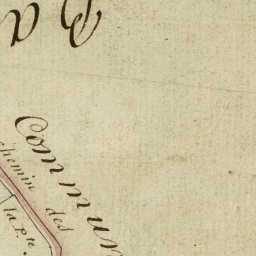 Ba
Commun
chemin des
la P.te